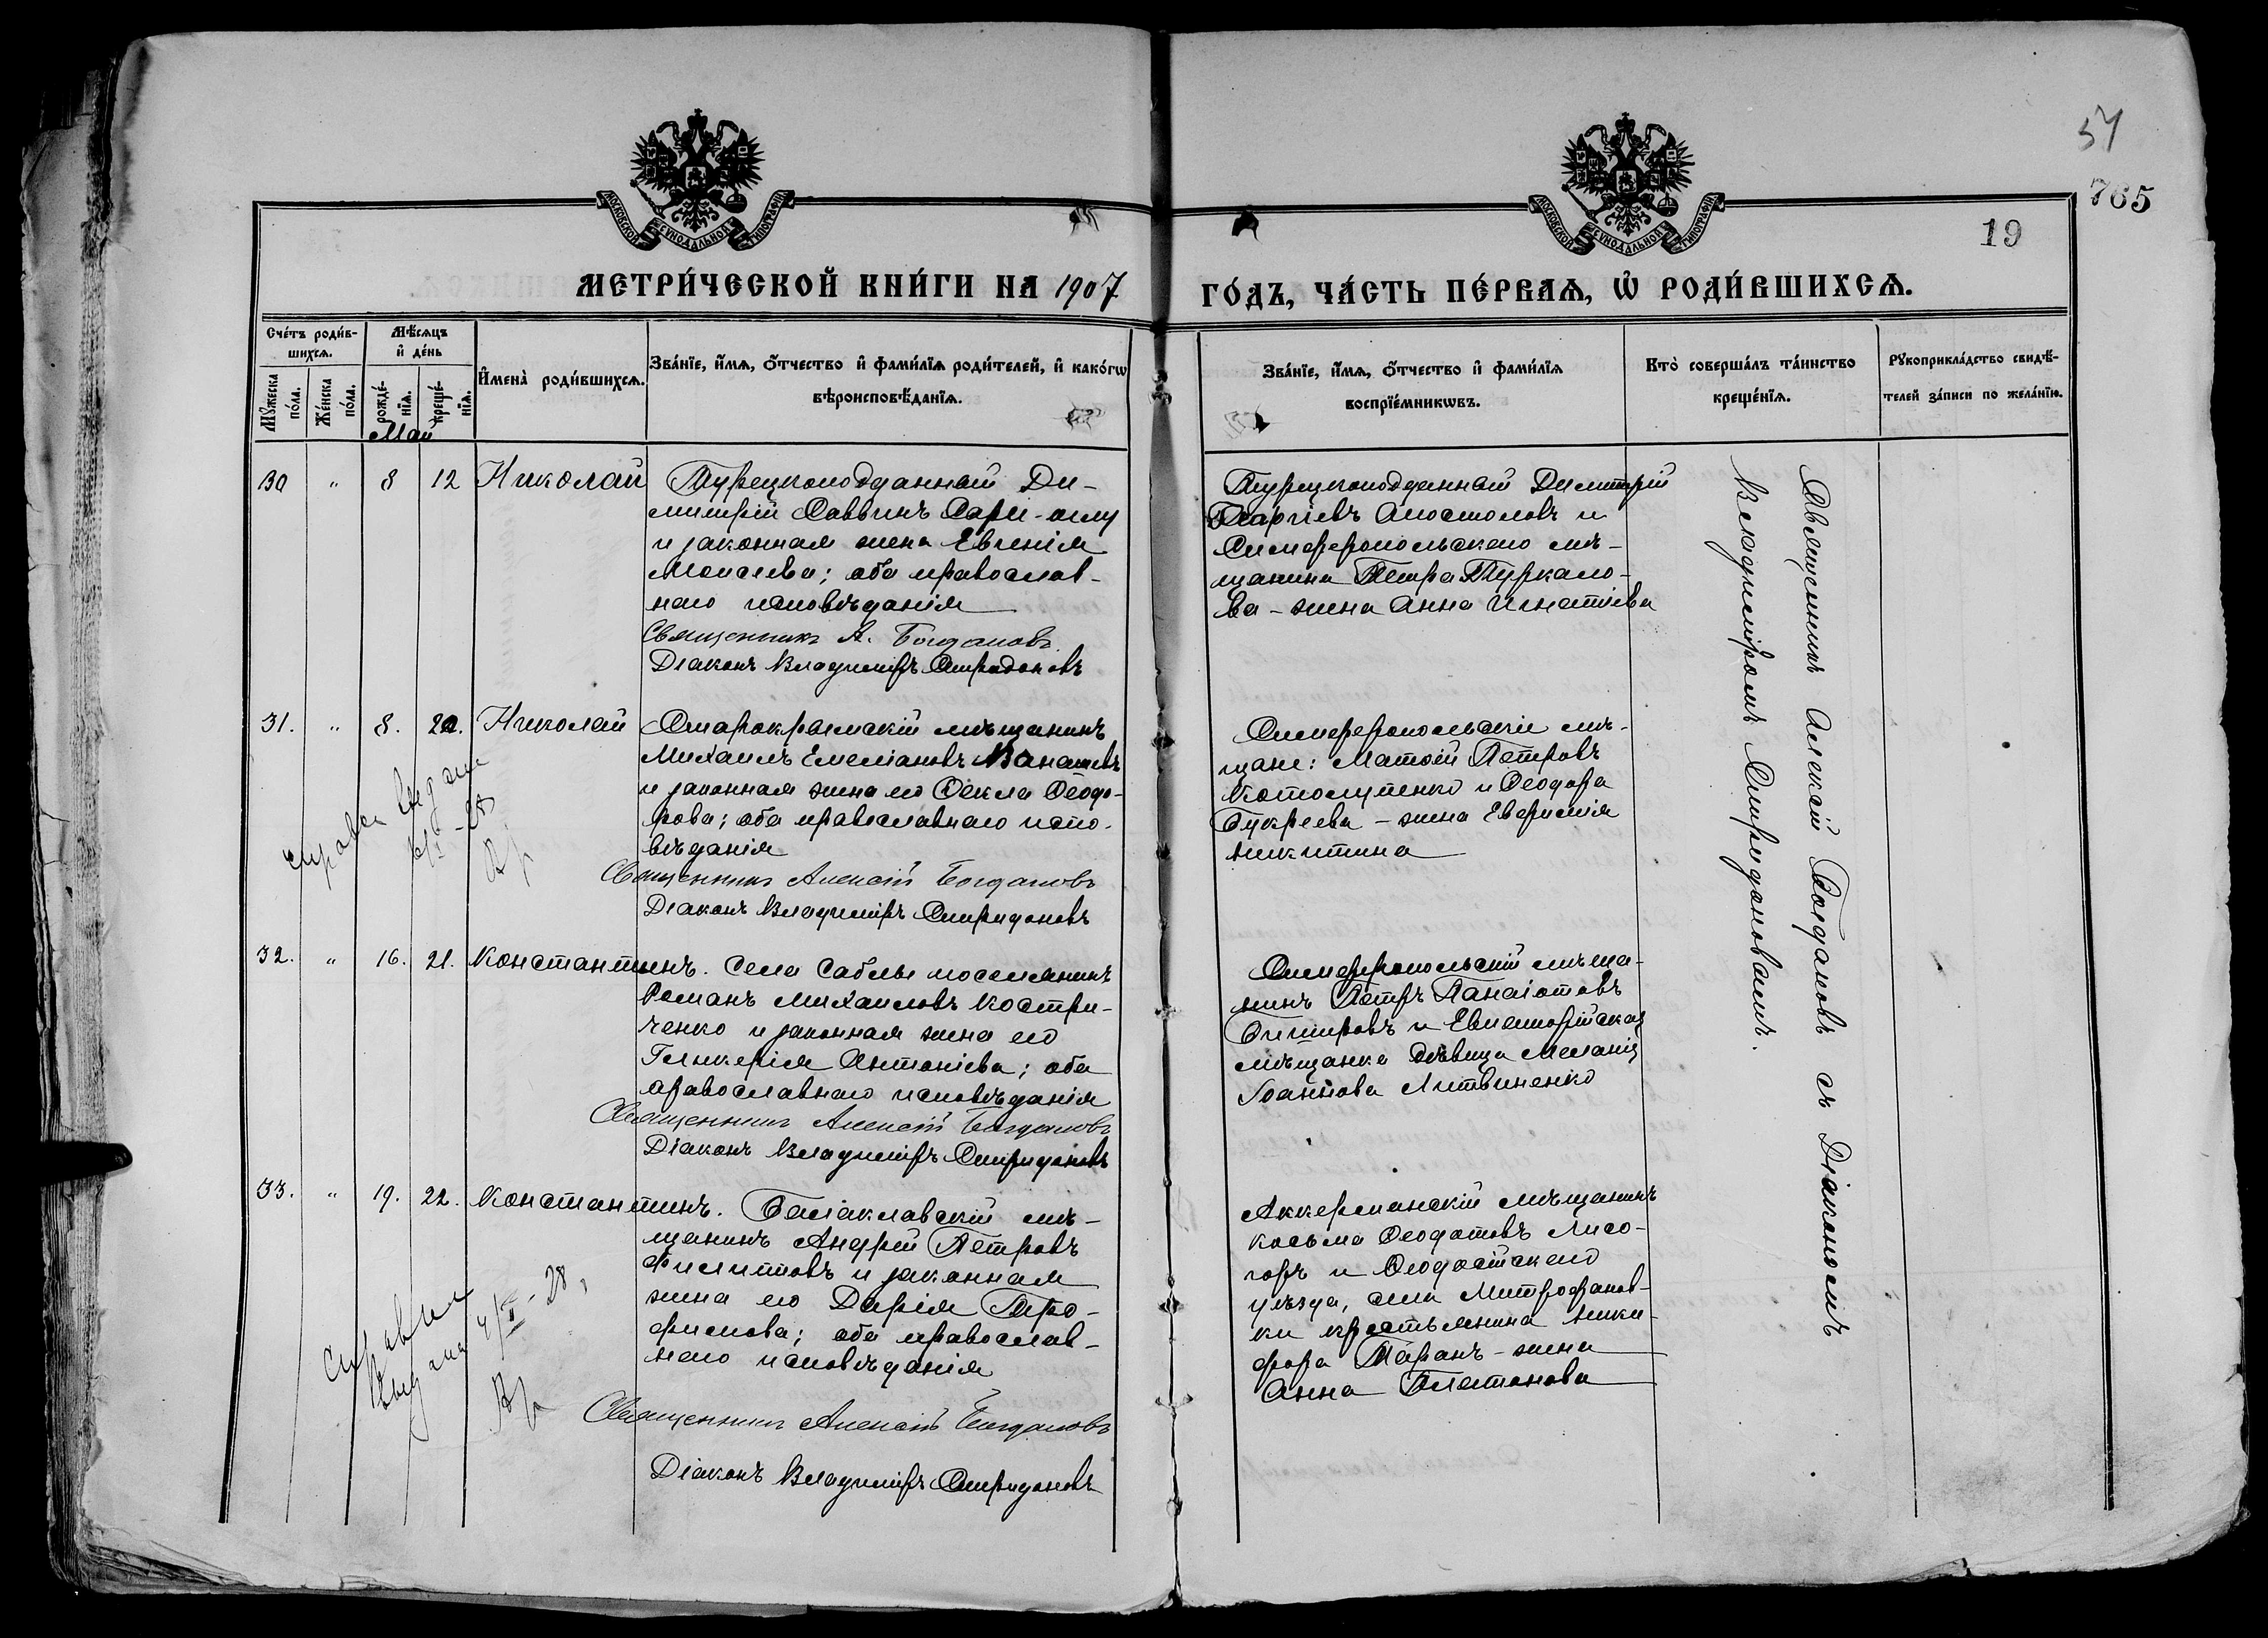 54
765
19
МОСКОВСКОЙ СѴНОДАЛЬНОЙ ТИПОГРАФІИ
МОСКОВСКОЙ СѴНОДАЛЬНОЙ ТИПОГРАФІИ
МЕТРИ́ЧЕСКОЙ КНИ́ГИ НА 1907
ГО́ДЪ, ЧА́СТЬ ПЕ́РВАѦ, Ѡ҆ РОДИ́ВШИХСѦ.
Сче́тъ роди́в-
шихсѧ.
Мꙋ́жеска
по́ла.
Же́нска
по́ла.
Мѣ́сѧцъ
и҆ де́нь
рожде́-
нїѧ.
креще́-
нїѧ.
И҆мена̀ роди́вшихсѧ.
Зва́нїе, и҆́мѧ, ѻ҆́тчество и҆ фами́лїѧ роди́телей, и҆ како́гѡ
вѣроисповѣ́данїѧ.
Зва́нїе, и҆́мѧ, ѻ҆́тчество и҆ фами́лїѧ
воспрїе́мникѡвъ.
Кто̀ соверша́лъ та́инство
креще́нїѧ.
Рꙋкоприкла́дство свидѣ́-
телей за́писи по жела́нїю.
Май
30 " 8 12 Николай
Турецкоподданный Ди-
митрій Саввинъ Сари-оглу
и законная жена Евгенія
Моисеева; оба православ-
наго исповѣданія
Священникъ А. Богдановъ.
Діаконъ Владиміръ Спиридоновъ
Турецкоподданный Димитрій
Георгіевъ Апостоловъ и
Симферопольскаго мѣ-
щанина Петра Туркало-
ва - жена Анна Игнатіева
31. " 8. 20. Николай
Старокрымскій мѣщанинъ
Михаилъ Емеліановъ
и законная жена его Ѳекла Ѳеодо-
рова; оба православнаго испо-
вѣданія
Священникъ Алексій Богдановъ
Діаконъ Владиміръ Спиридоновъ
справка выдана
Симферопольскіе мѣ-
щане: Матѳей Петровъ
Котолупенко и Ѳеодора
Букреева - жена Евфимія
Никитина
32. " 16. 21. Константинъ.
Села Саблы поселянинъ
Романъ Михаиловъ Костри-
ченко и законная жена его
Гликерія Антоніева; оба
православнаго исповѣданія
Священникъ Алексій Богдановъ
Діаконъ Владиміръ Спиридоновъ
Симферопольскій мѣща-
нинъ Петръ Панаіотовъ
и Евпаторійская
мѣщанка дѣвица Меланія
Іоаннова Литвиненко
33. " 19. 22. Константинъ.
Балаклавскій мѣ-
щанинъ Андрей Петровъ
Филипповъ и законная
жена его Дарія Тро-
фимова; оба православ-
наго исповѣданія
Священникъ Алексій Богдановъ
Діаконъ Владиміръ Спиридоновъ
справка
выдана 4/X - 28,
Аккерманскій мѣщанинъ
Косьма Ѳеодотовъ Лисо-
горъ и Ѳеодосійскаго
уѣзда, села Митрофанов-
ки крестьянина Ники-
фора Таранъ - жена
Анна Платонова
Священникъ Алексій Богдановъ съ Діакономъ
Владиміромъ Спиридоновымъ.